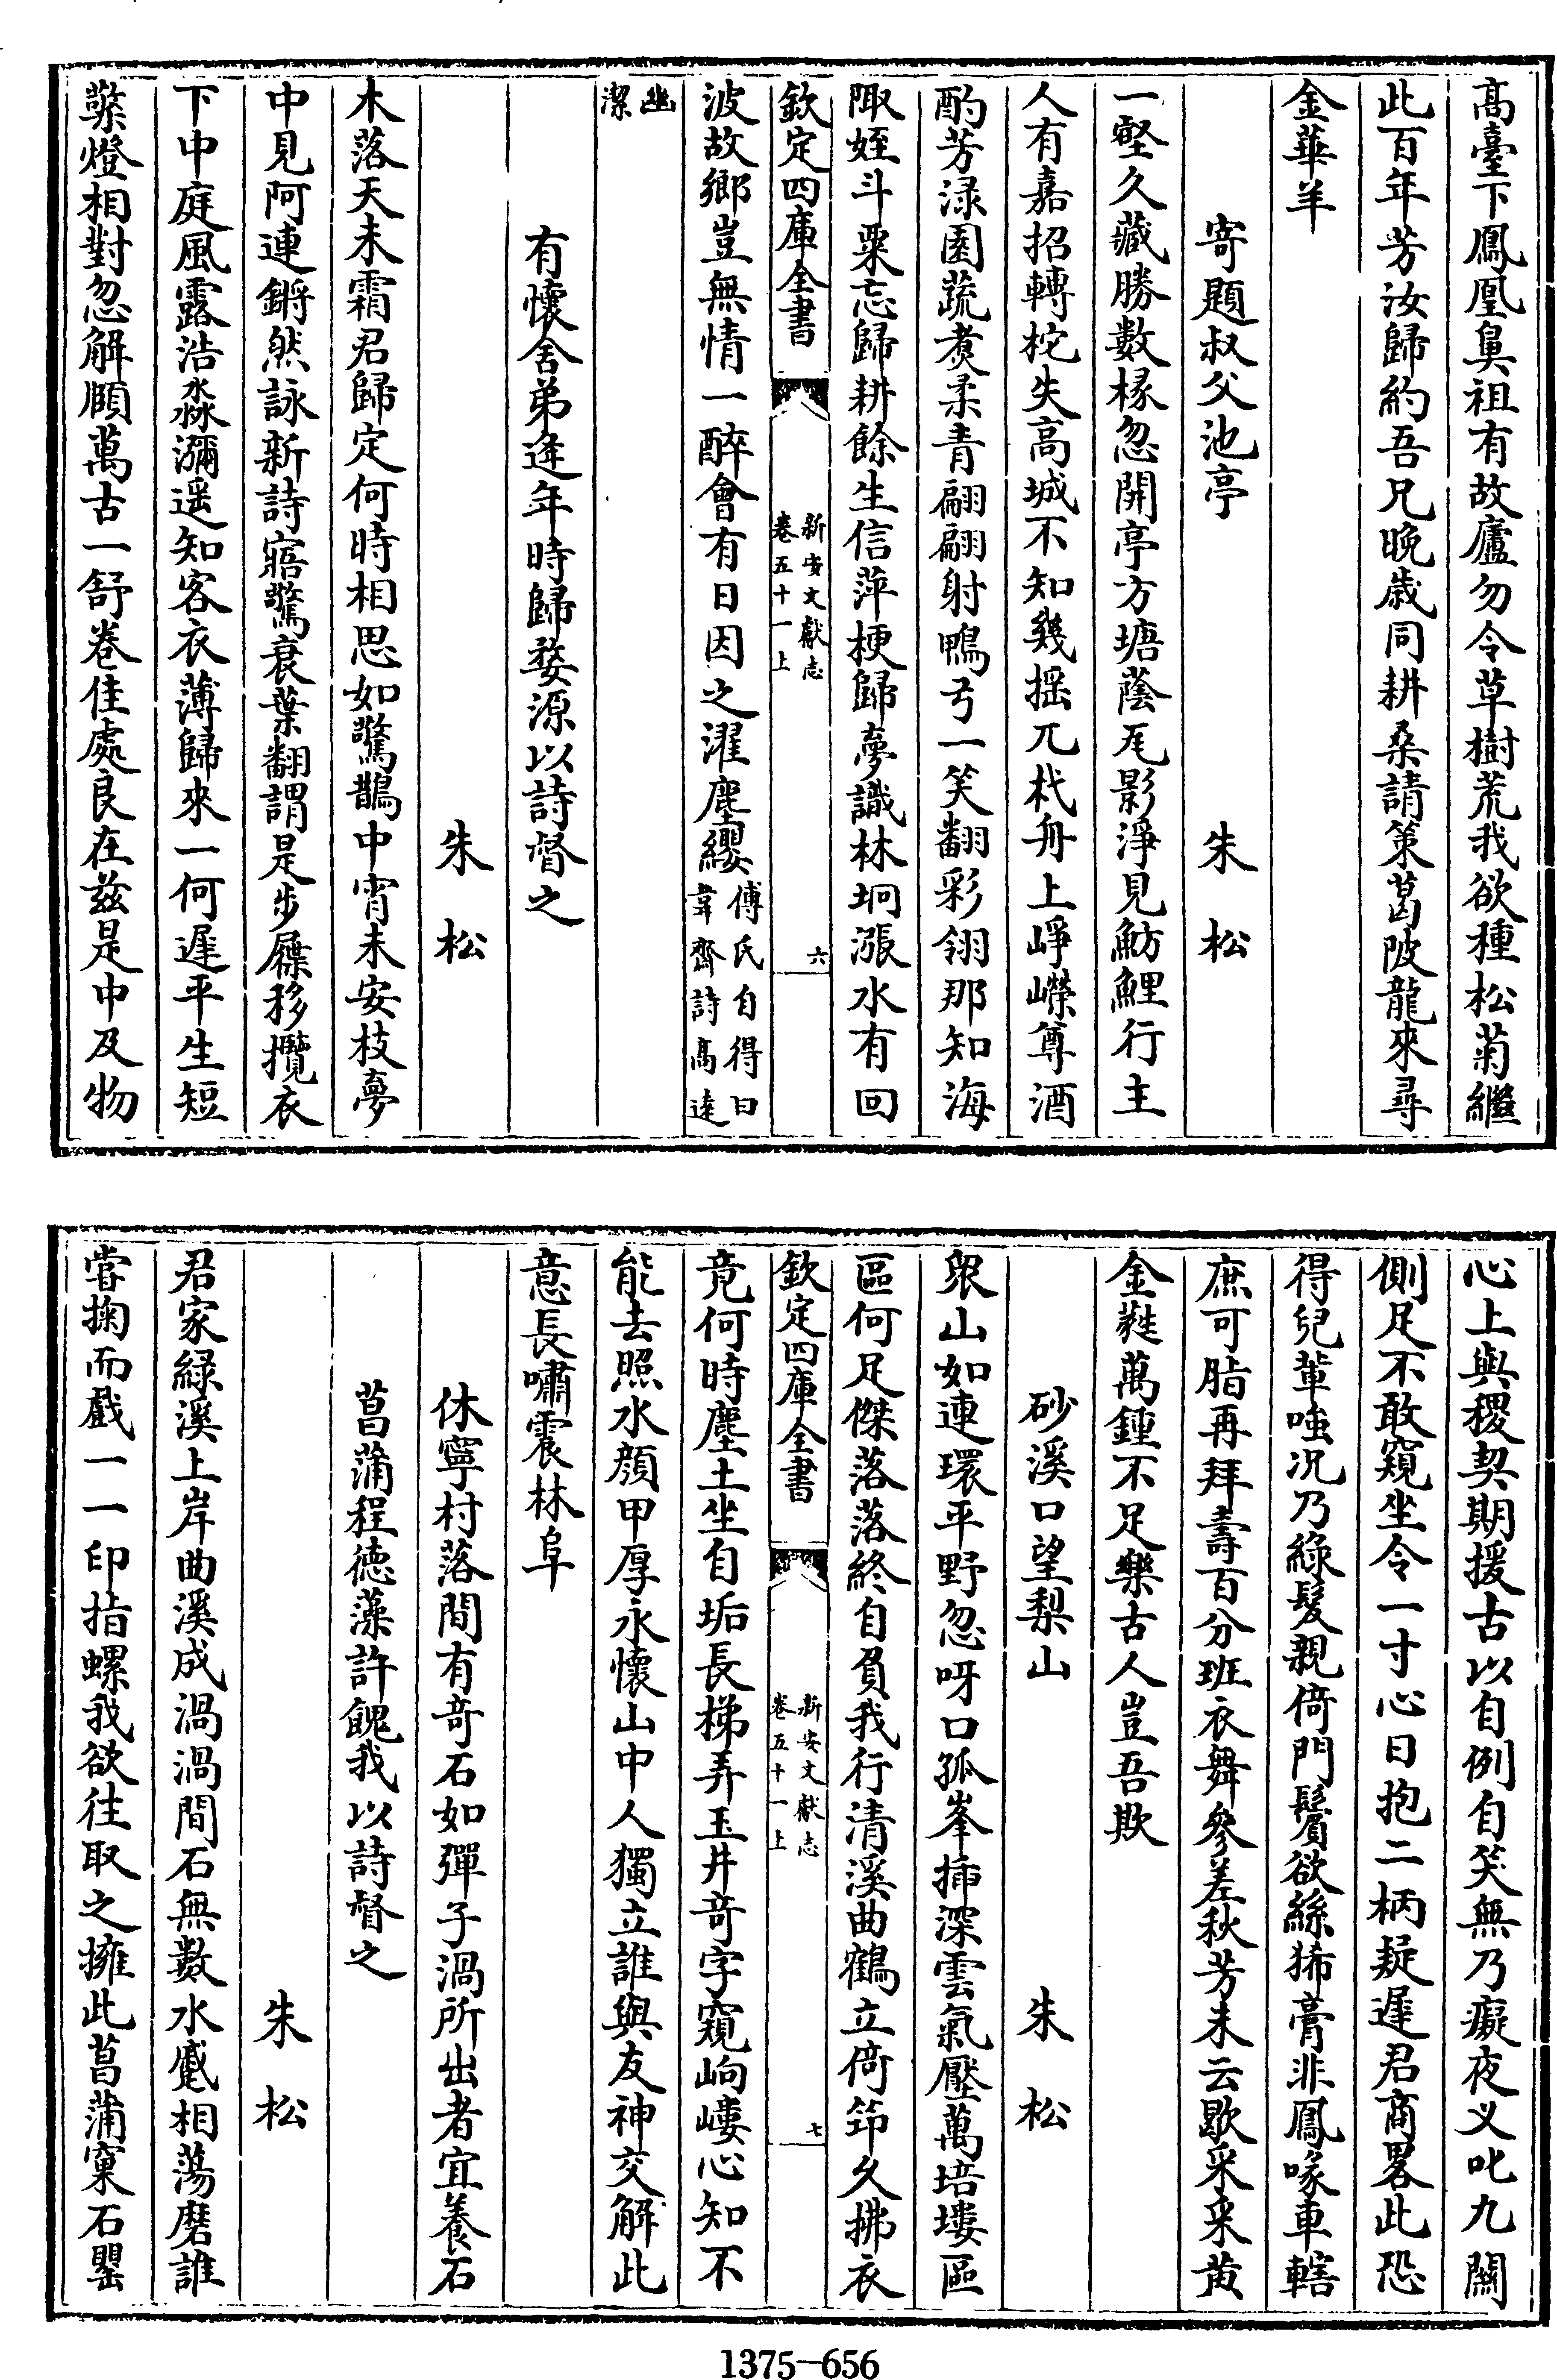 高臺下鳳凰鼻祖有故廬勿令草樹荒我欲種松菊繼
此百年芳汝歸約吾兄晩歲同耕桑請策葛陂龍來尋
金華羊
寄題叔父池亭 朱松
一壑久藏勝數椽忽開亭方塘蔭瓦影淨見魴鯉行主
人有嘉招轉柁失高城不知幾揺兀杙舟上崢嶸尊酒
酌芳渌園蔬煑柔青翩翩射鴨弓一笑翻彩翎那知海
陬姪斗粟忘歸耕餘生信萍梗歸夢識林坰漲水有回
欽定四庫全書 新安文獻志 卷五十一上 六
波故鄉豈無情一醉會有日因之濯塵纓傅氏自得曰韋齋詩高逺
幽潔
有懷舍弟逄年時歸婺源以詩督之
朱松
木落天未霜君歸定何時相思如驚鵲中宵未安枝夢
中見阿連鏘然詠新詩寤驚衰葉翻謂是步屧移攬衣
下中庭風露浩淼瀰遥知客衣薄歸來一何遲平生短
檠燈相對忽解頤萬古一舒卷佳處良在兹是中及物
心上與稷契期援古以自例自笑無乃癡夜义叱九關
側足不敢窺坐令一寸心日抱二柄疑遲君商畧此恐
得兒輩嗤况乃綠髮親倚門鬢欲絲狶膏非鳳喙車轄
庶可脂再拜壽百分班衣舞參差秋芳未云歇采采黄
金蕤萬鍾不足樂古人豈吾欺
砂溪口望梨山 朱松
衆山如連環平野忽呀口孤峯揷深雲氣壓萬培塿區
區何足傑落落終自負我行清溪曲鶴立倚筇久拂衣
欽定四庫全書 新安文獻志 卷五十一上 七
竟何時塵土坐自垢長梯弄玉井竒字窺岣嶁心知不
能去照水顔甲厚永懷山中人獨立誰與友神交解此
意長嘯震林阜
休寧村落間有竒石如彈子渦所出者宜養石
菖蒲程徳藻許餽我以詩督之
朱松
君家綠溪上岸曲溪成渦渦間石無數水蹙相蕩磨誰
嘗掬而戲一一印指螺我欲往取之擁此菖蒲窠石罌
1375—656